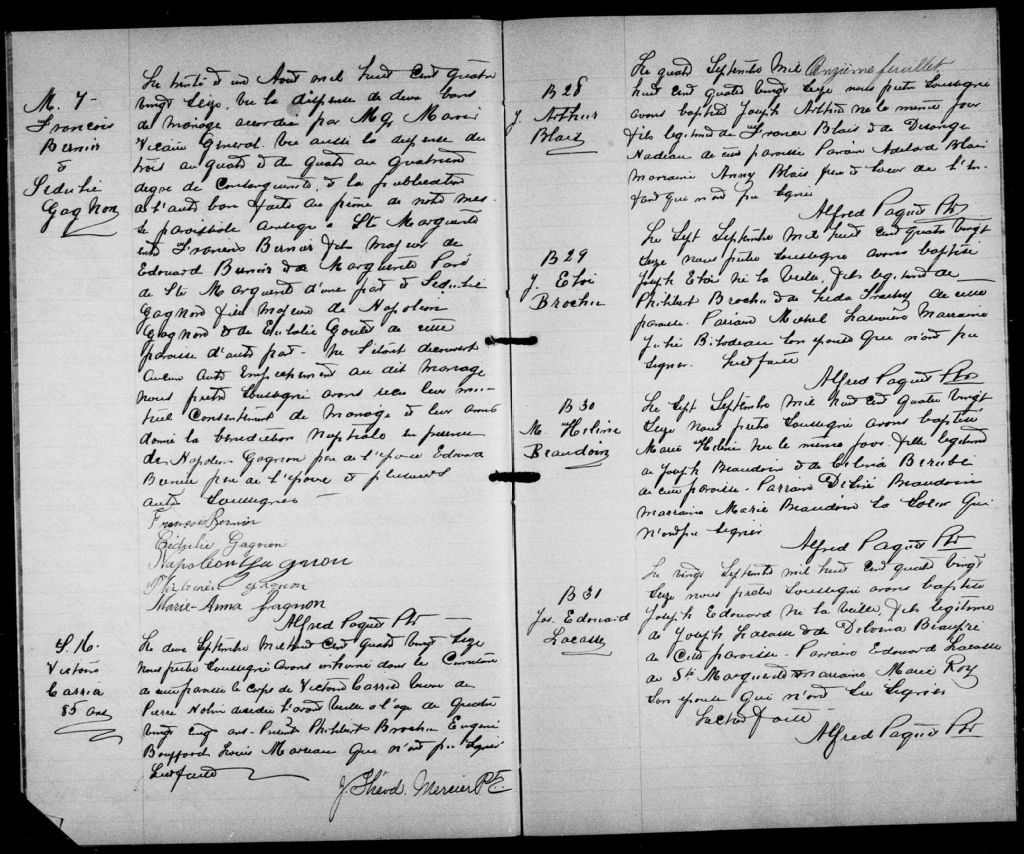 M. 7
Francois
Bernier
&
Sedulie
Gagnon
Le trente et un Aout mil huit cent quatre
vingt seize. Vu la dispense de deux bans
de mariage accordée par Mgr Marois
Vicaire General. Vu aussi la dispense du
trois au quatre & du quatre au quatrieme
degre de consanguinité, & la publication
de l'autre ban faite au prône de notre mes-
se paroissiale
entre Francois Bernier fils majeur de
Edouard Bernier & de Marguerite Paré
de Ste Marguerite d'une part & Sedulie
Gagnon fille majeure de Napoleon
Gagnon & de Eulalie Goulet de cette
paroisse d'autre part - Ne s'étant decouvert
aucun autre empechement au dit mariage
nous pretre soussigné avons recu leur mu-
tuel consentement de mariage & leur avons
donné la benediction nuptiale en presence
de Napoleon Gagnon pere de l'epouse Edouard
Bernier pere de l'epoux & plusieurs
autres soussignés
François Bernier
Cédulie Gagnon
Napoléon Gagnon
Gagnon
Marie-Anna Gagnon
Alfred Paquet Ptr
S. 16.
Victoire
Carrier
85 ans
Le deux Septembre mil huit cent quatre vingt seize
nous pretre soussigné avons inhumé dans le cimetière
de cette paroisse le corps de Victoire Carrier veuve de
Pierre Nolin decedée l'avant veille a l'age de quatre
vingt cinq ans. Presents Philibert Brochu Eugène
Bouffard Louis Marceau qui n'ont pu signer
Lecture faite
J. Théod. Mercier Ptre
Onzième feuillet
B 28
J. Arthur
Blais
Le quatre Septembre mil
huit cent quatre vingt seize nous pretre soussigné
avons baptisé Joseph Arthur né le même jour
fils legitime de France Blais & de Desange
Nadeau de cette paroisse Parrain Adelard Blais
marraine Anny Blais frere & soeur de l'en-
fant qui n'ont pu signer
Alfred Paquet Ptr
B 29
J. Eloi
Brochu
Le sept Septembre mil huit cent quatre vingt
seize nous pretre soussigné avons baptisé
Joseph Eloi né la veille, fils legitime de
Philibert Brochu & de Leda de cette
paroisse. Parrain Michel Marraine
Julie Bilodeau son epouse qui n'ont pu
signer. Lect faite
Alfred Paquet Ptr
B 30
M. Helène
Beaudoin
Le sept Septembre mil huit cent quatre vingt
seize nous pretre soussigné avons baptisé
Marie Helène née le même jour, fille legitime
de Joseph Beaudoin & de Celina Berubé
de cette paroisse - Parrain Beaudoin
marraine Marie Beaudoin sa soeur qui
n'ont pu signer
Alfred Paquet Ptr
B 31
Jos. Edouard
Lacasse
Le vingt Septembre mil huit cent quatre vingt
seize nous pretre soussigné avons baptisé
Joseph Edouard né la veille, fils legitime
de Joseph Lacasse & de Delvina Beaupré
de cette paroisse. Parrain Edouard Lacasse
de Ste Marguerite marraine Marie Roy
son epouse qui n'ont su signer
Lecture faite
Alfred Paquet Ptr